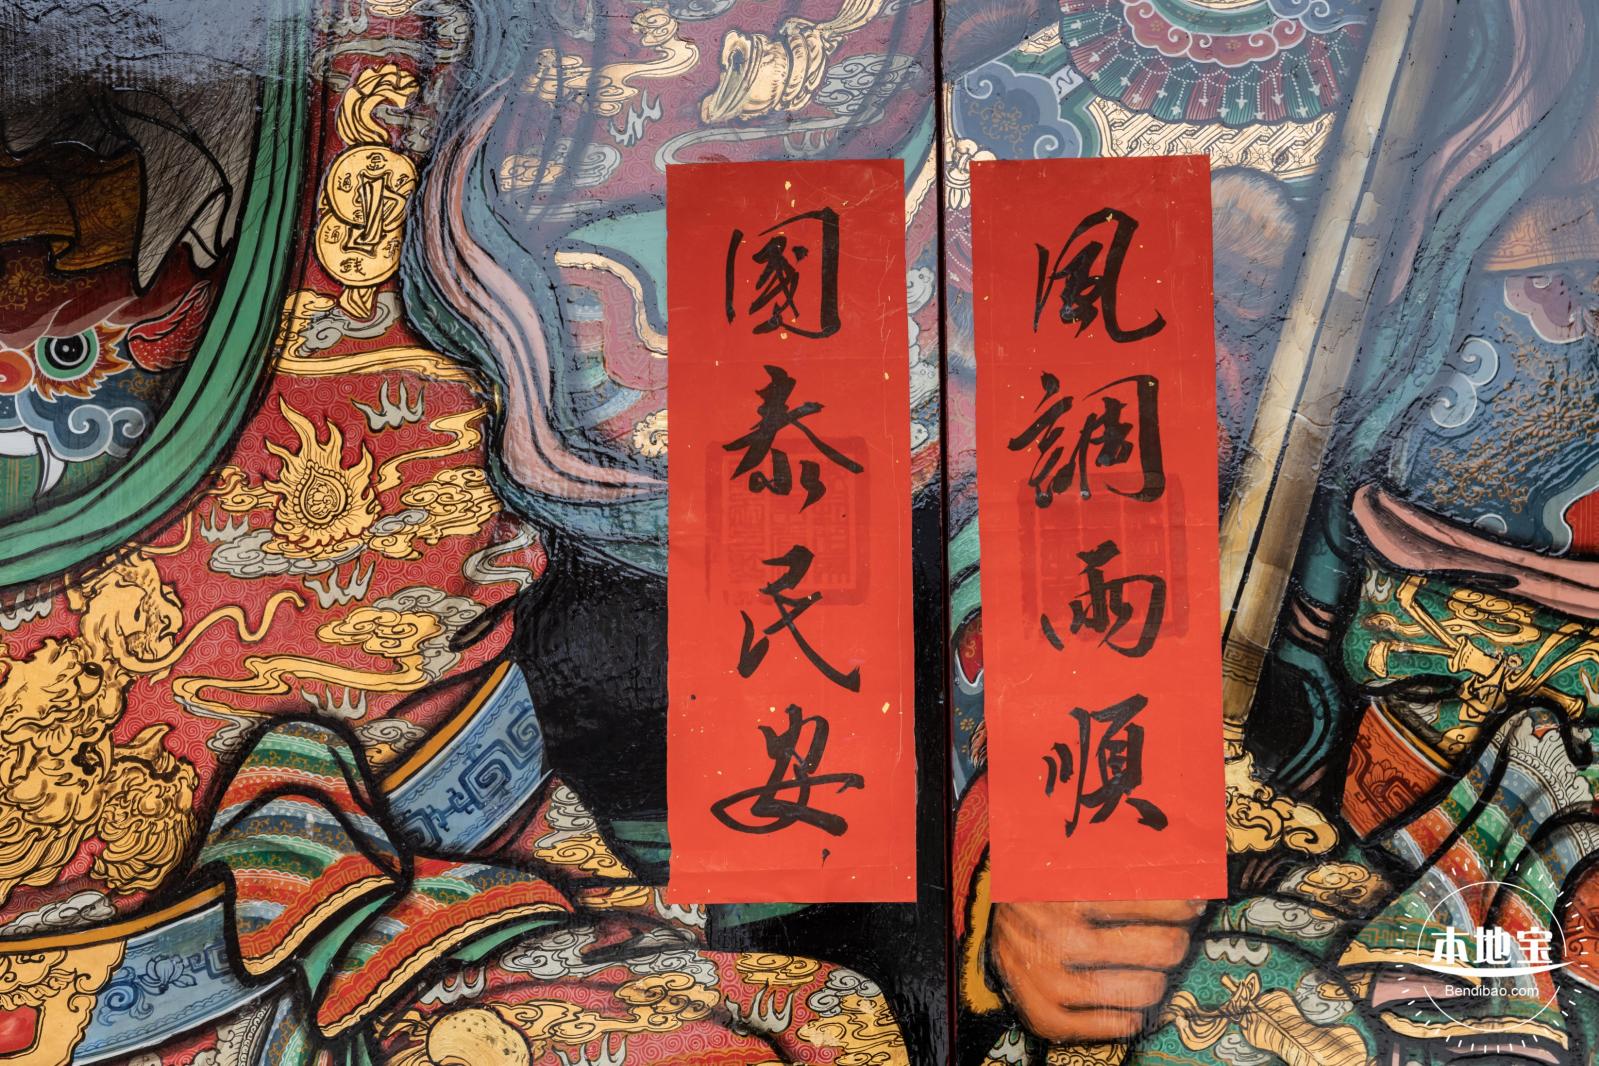 風調雨順
國泰民安
本地宝
Bendibao.com